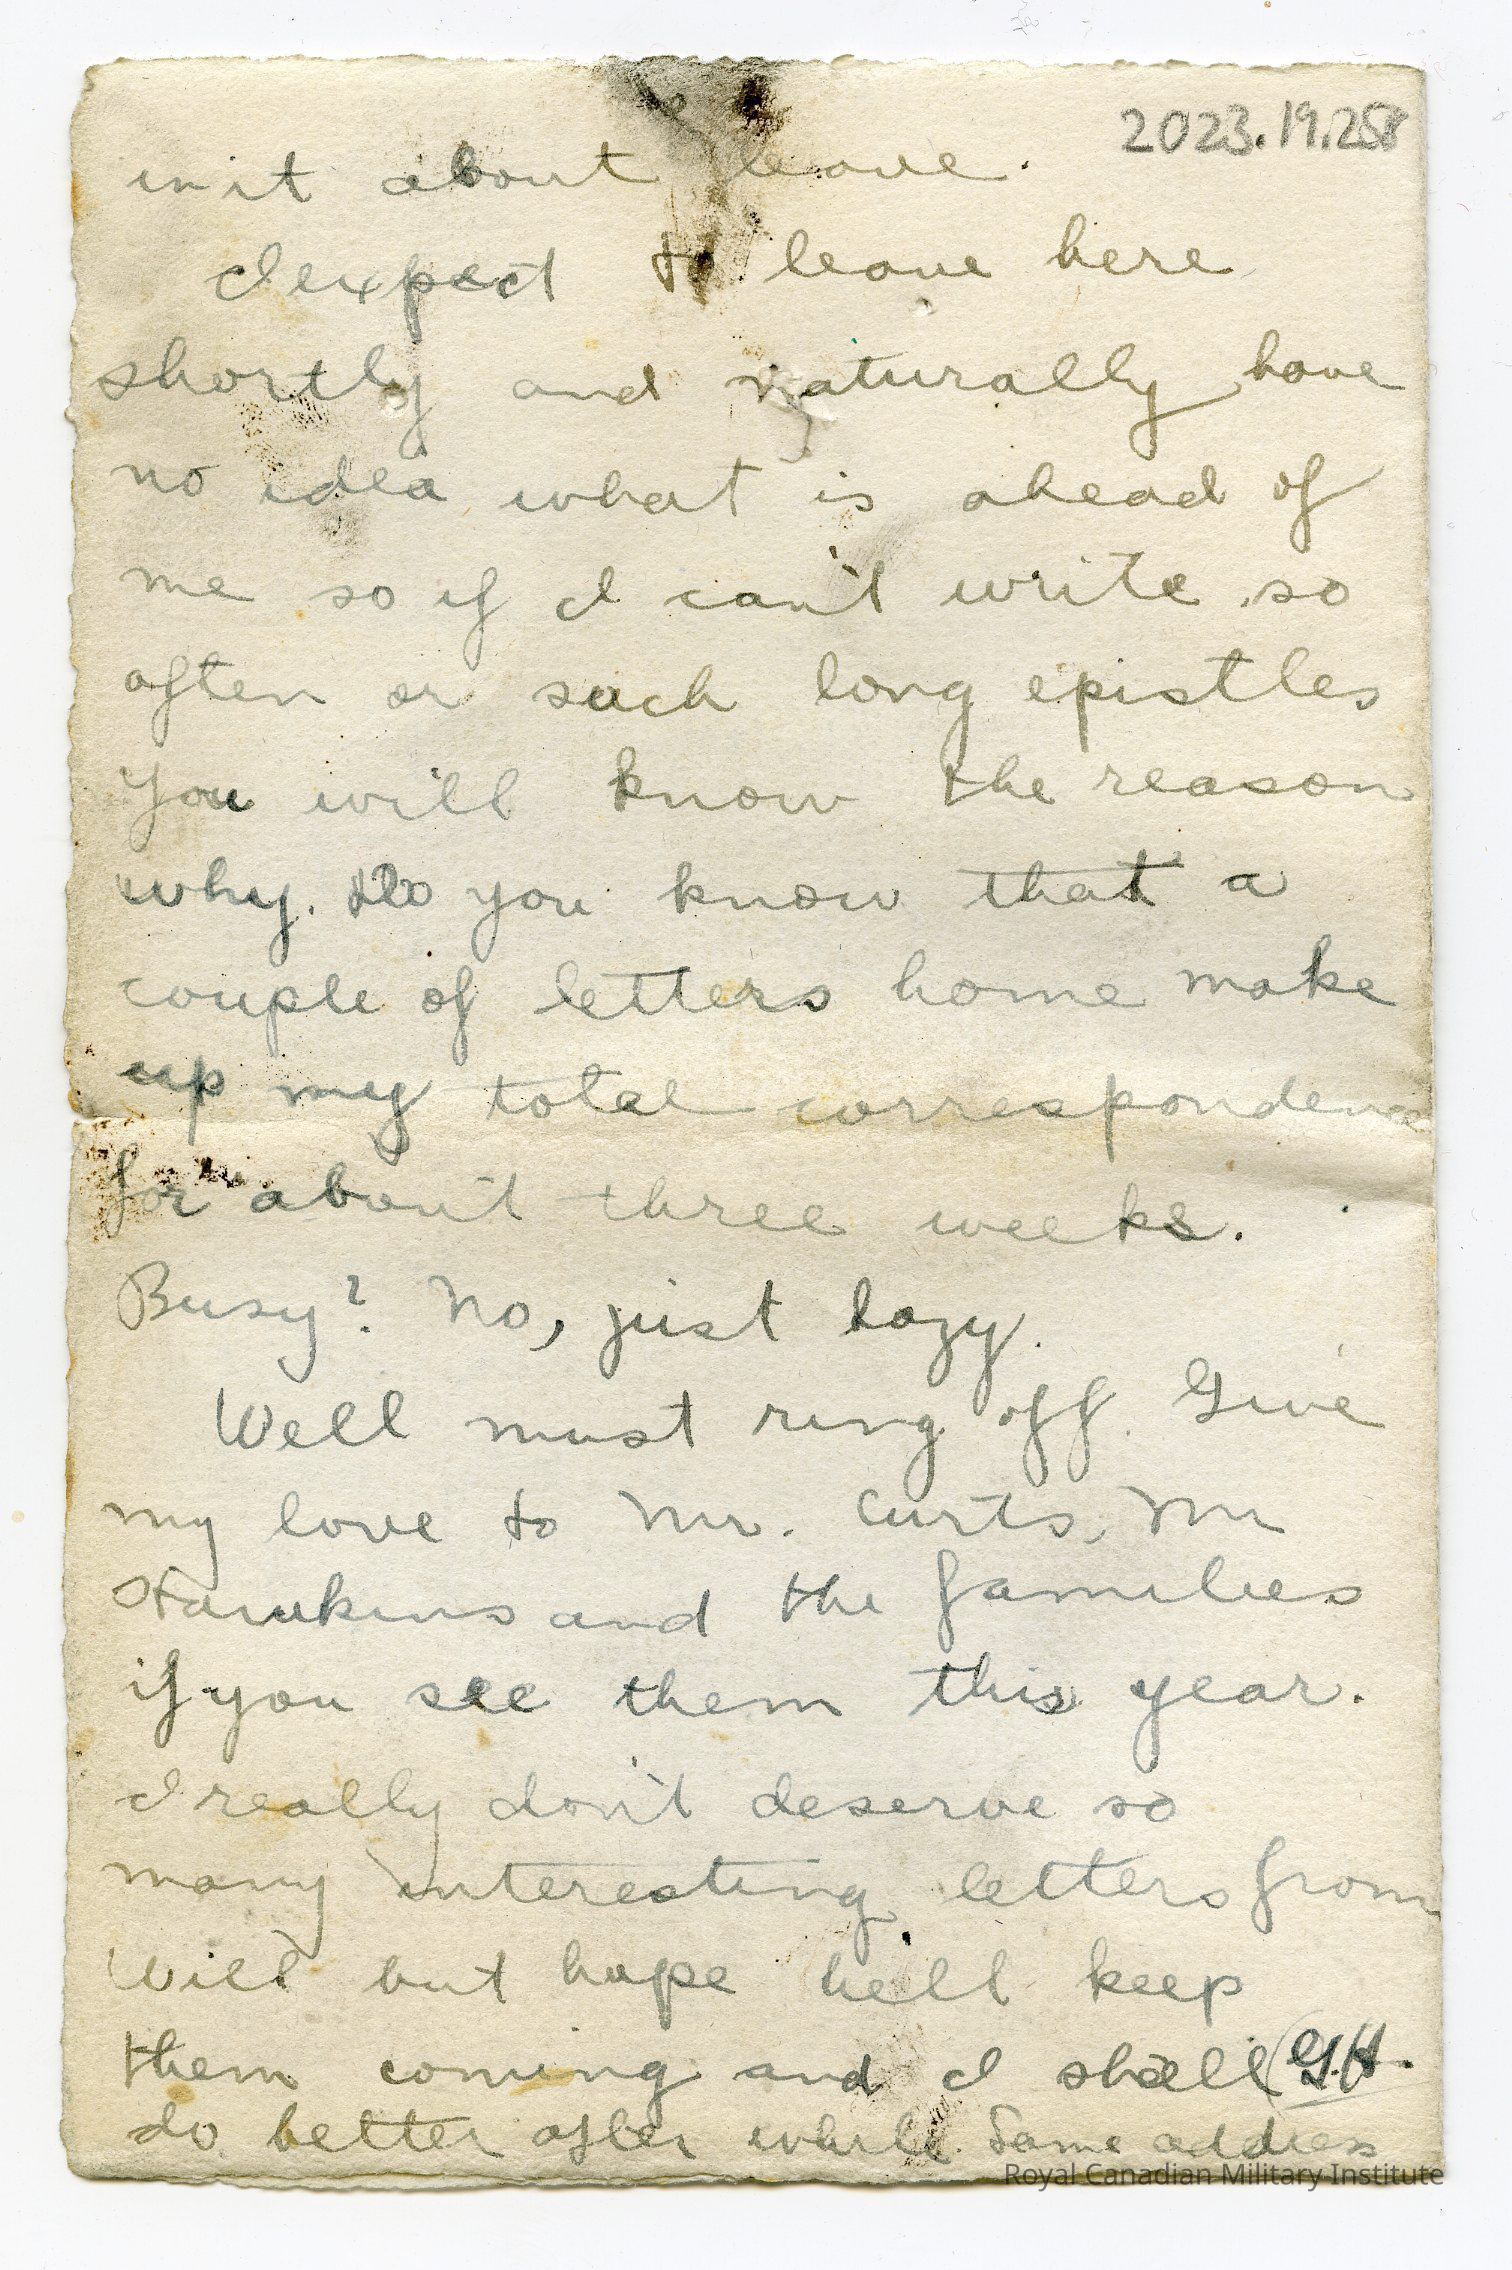 2023.19.258
in it about leave.
I expect to leave here
shortly and naturally have
no idea what is ahead of
me so if I can't write so
often or such long epistles
you will know the reason
why. Do you know that a
couple of letters home make
up my total correspondence
for about three weeks.
Busy? No, just lazy.
Well must ring off. Give
my love to Mr. Curts, Mr
Hawkins and the families
if you see them this year.
I really don't deserve so
many interesting letters from
Will but hope he'll keep
them coming and I shall (G.H.
do better after while. Same address
Royal Canadian Military Institute